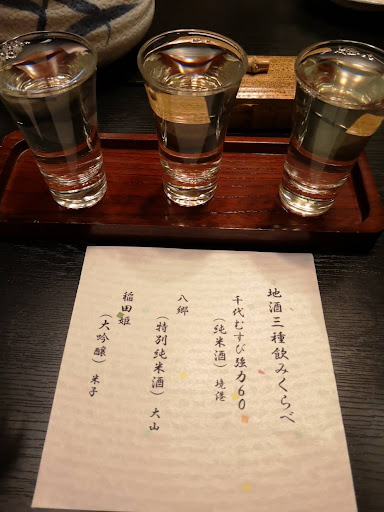 地酒三種飲みくらべ
千代むすび強力60
(純米酒) 境港
八郷
(特別純米酒) 大山
稲田姫
(大吟醸) 米子